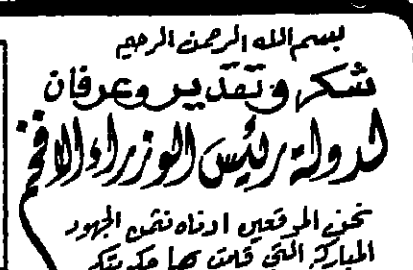 بسم الله الرحمن الرحيم
شكر وتقدير وعرفان
لدولة رئيس الوزراء الافخم
نحن الموقعين ادناه نثمن الجهود
المباركة التي قامت بها حكومتكم